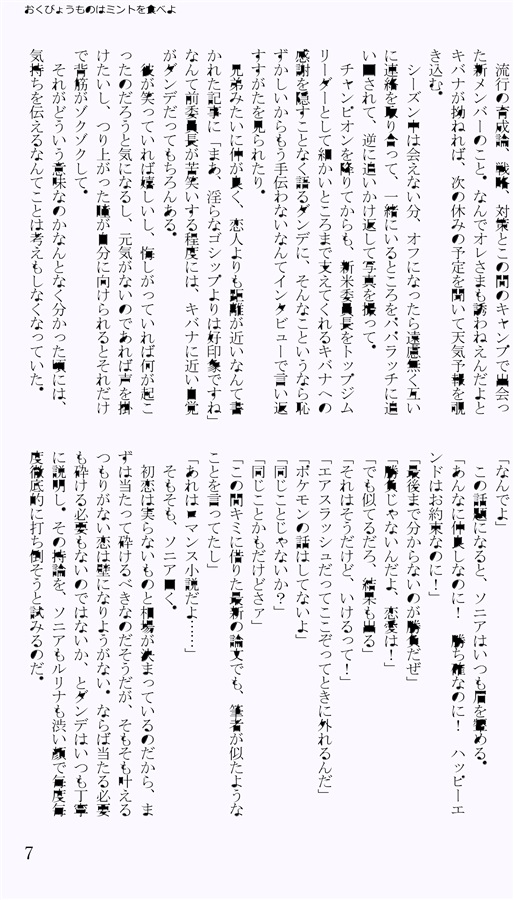 おくびょうものはミントを食べよ
　流行の育成論、戦略、対策とこの間のキャンプで出会っ
た新メンバーのこと。なんでオレさまも誘わねえんだよと
キバナが拗ねれば、次の休みの予定を聞いて天気予報を覗
き込む。
　シーズン中は会えない分、オフになったら遠慮無く互い
に連絡を取り合って、一緒にいるところをパパラッチに追
い回されて、逆に追いかけ返して写真を撮って。
　チャンピオンを降りてからも、新米委員長をトップジム
リーダーとして細かいところまで支えてくれるキバナへの
感謝を隠すことなく語るダンデに、そんなこというなら恥
ずかしいからもう手伝わないなんてインタビューで言い返
すすがたを見られたり。
　兄弟みたいに仲が良く、恋人よりも距離が近いなんて書
かれた記事に「まあ、淫らなゴシップよりは好印象ですね」
なんて前委員長が苦笑いする程度には、キバナに近い自覚
がダンデだってもちろんある。
　彼が笑っていれば嬉しいし、悔しがっていれば何が起こ
ったのだろうと気になるし、元気がないのであれば声を掛
けたいし、つり上がった瞳が自分に向けられるとそれだけ
で背筋がゾクゾクして。
　それがどういう意味なのかなんとなく分かった頃には、
気持ちを伝えるなんてことは考えもしなくなっていた。
「なんでよ」
　この話題になると、ソニアはいつも眉を顰める。
「あんなに仲良しなのに！　勝ち確なのに！　ハッピーエ
ンドはお約束なのに！」
「最後まで分からないのが勝負だぜ」
「勝負じゃないんだよ、恋愛は！」
「でも似てるだろ、結果も出る」
「それはそうだけど、いけるって！」
「エアスラッシュだってここぞってときに外れるんだ」
「ポケモンの話はしてないよ」
「同じことじゃないか？」
「同じことかもだけどさァ」
「この間キミに借りた最新の論文でも、筆者が似たような
ことを言ってたし」
「あれはロマンス小説だよ……」
　そもそも、ソニア曰く。
　初恋は実らないものと相場が決まっているのだから、ま
ずは当たって砕けるべきなのだそうだが、そもそも叶える
つもりがない恋は壁になりようがない。ならば当たる必要
も砕ける必要もないのではないか、とダンデはいつも丁寧
に説明し。その持論を、ソニアもルリナも渋い顔で毎度毎
度徹底的に打ち倒そうと試みるのだ。
7